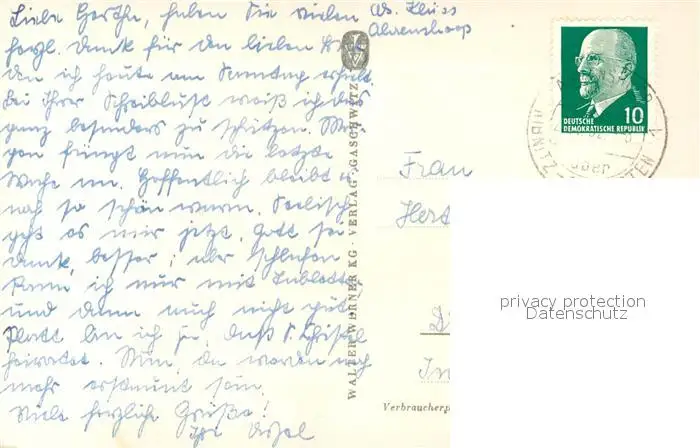 Liebe Gerthe, haben Sie vielen
herzl. Dank für den lieben
den ich heute am Sonntag erhielt.
Bei Ihrer Schreiblust weiß ich das
ganz besonders zu schätzen. Mor-
gen fängt nun die letzte
Woche an. Hoffentlich bleibt es
noch so schön warm. Seelisch
geht es mir jetzt, Gott sei
Dank, besser; aber schlafen
kann ich nur mit Tablette
und dann auch nicht gut.
Platt bin ich ja, daß
heiratet. Nun, da werden noch
mehr erstaunt sein.
Viele herzliche Grüße!
Ihre
Ahrenshoop
WALTER WERNER KG · VERLAG · GASCHWITZ
10
DEUTSCHE
DEMOKRATISCHE REPUBLIK
Frau
Hert
D
In
Verbraucherp
privacy protection
Datenschutz